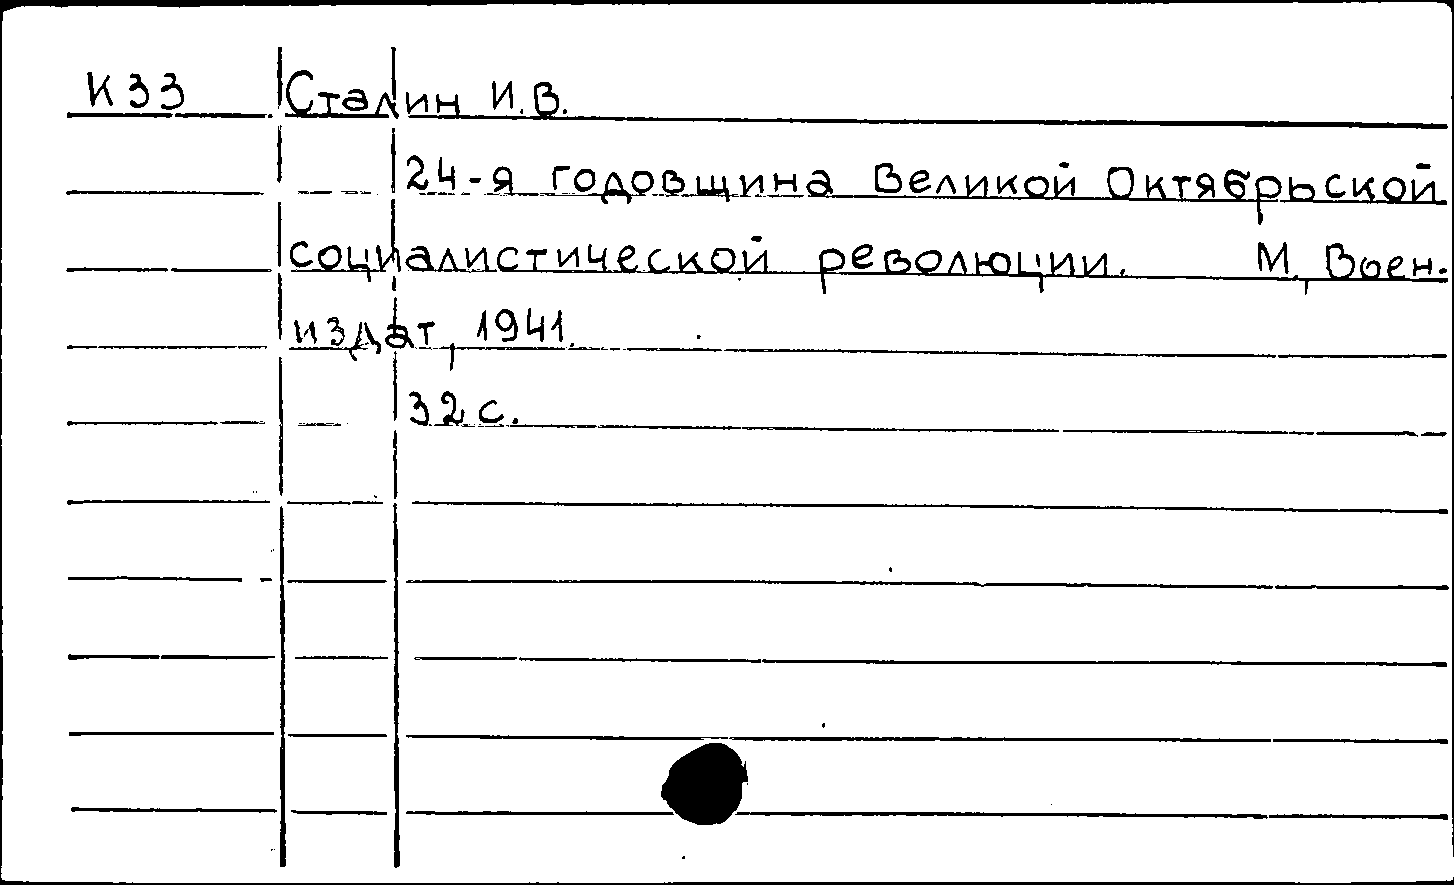 К33 Сталин И.В.
24-я годовщина Великой Октябрьской
социалистической революции. М., Воен-
издат, 1941.
32 с.